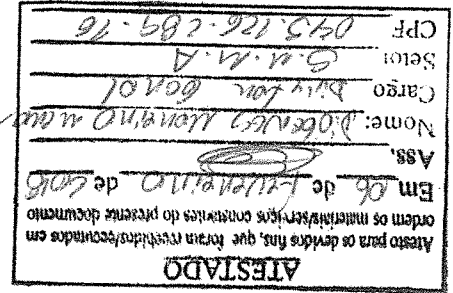 ATESTADO
Atesto para os devidos fins, que foram recebidos/executados em
ordem os materiais/serviços constantes do presente documento
Em 06 de Fevereiro de 2018
Ass.
Nome: Diogenes Monteiro
Cargo Diretor Geral
Setor S.M.M.A
CPF